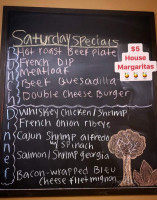 Saturday Specials
Hot Roast Beef Plate
French Dip
Meatloaf
Beef Quesadilla
Double Cheese Burger
Whiskey Chicken/Shrimp
French Onion Ribeye
Cajun Shrimp Alfredo
w/ Spinach
Salmon/Shrimp Georgia
Bacon-Wrapped Bleu
Cheese Filet Mignon
Lunch
Dinner
$5
House
Margaritas